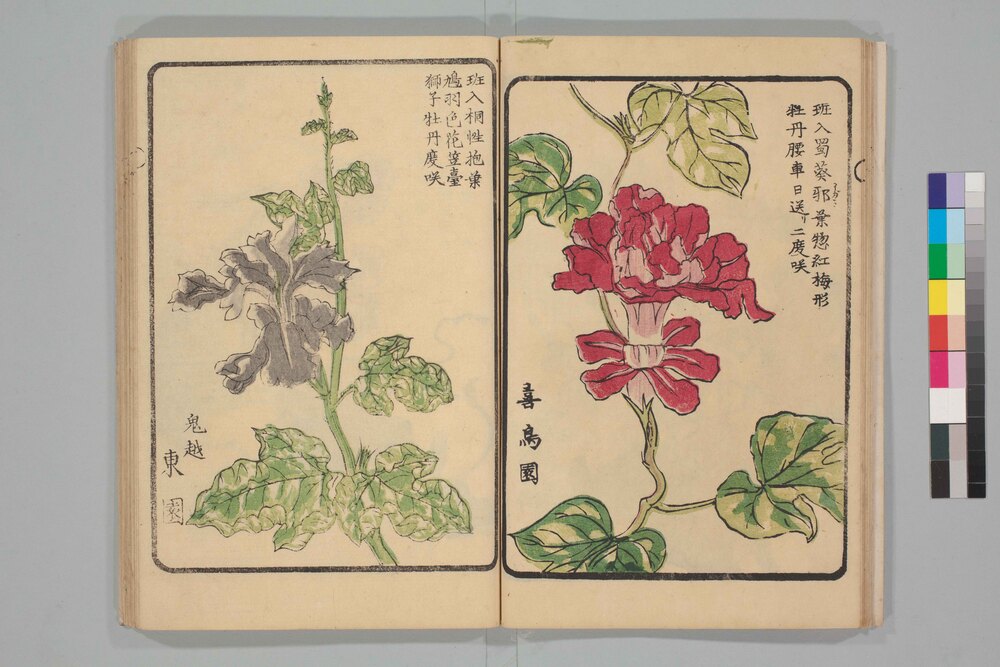 班入蜀葵邪葉惣紅梅形
牡丹腰車日送リ二度咲
喜鳥園
班入桐性抱葉
鳩羽色花筐臺
獅子牡丹度咲
鬼越
東園